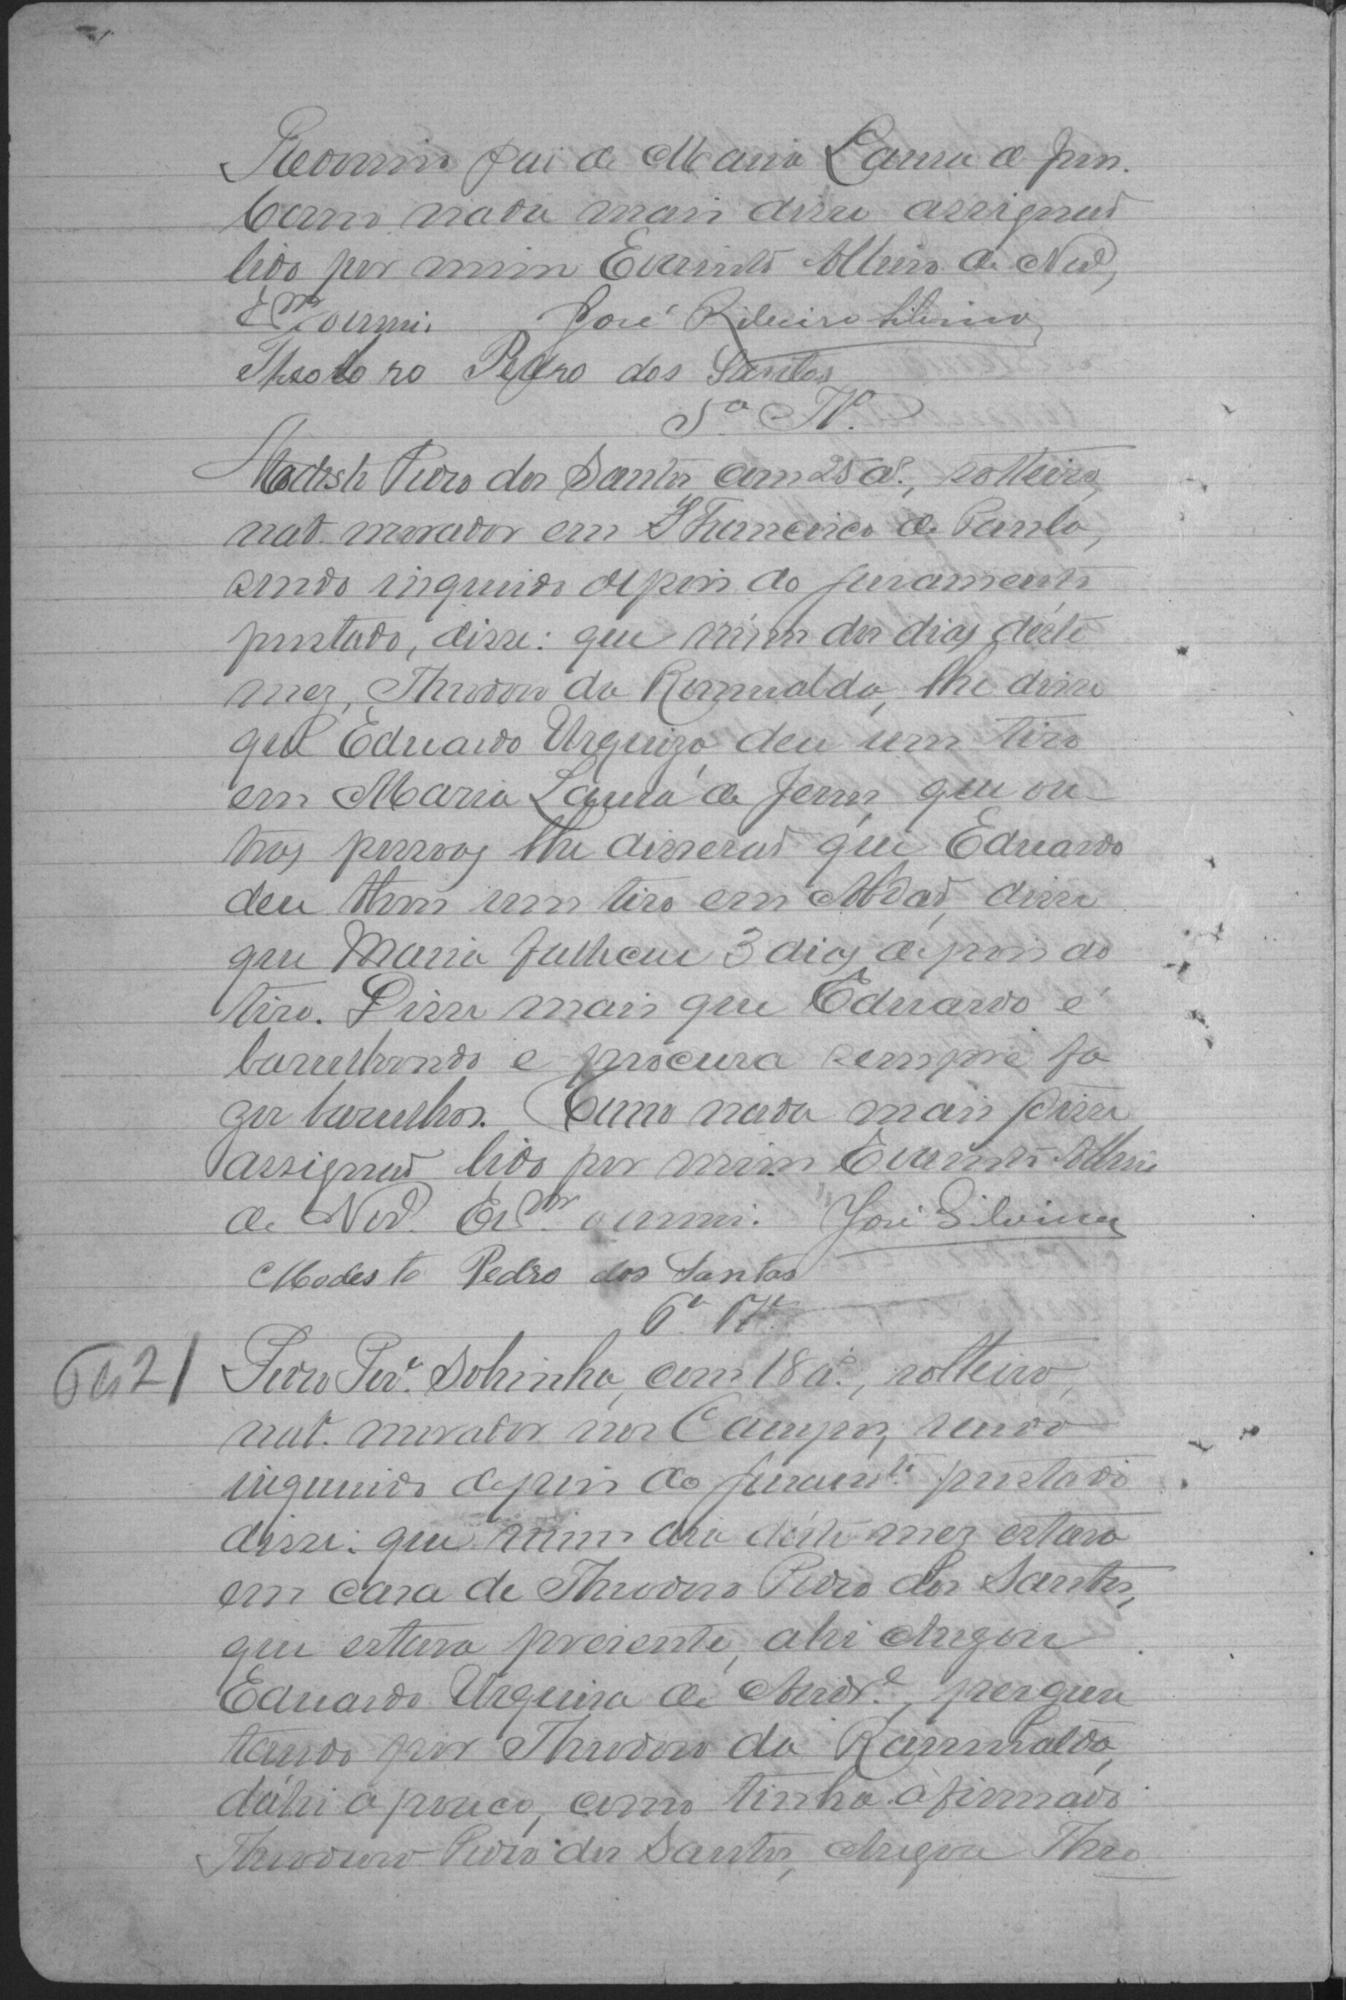 pai de Maria Laura de Jesus.
Como nada mais disse assignou
lido por mim Evaristo de
escrevi. José Ribeiro Silvino
Theodoro Pedro dos Santos
5ª Tª.
Modesto Pedro dos Santos com 25 aˢ., solteiro,
nat. morador em S Francisco de Paula,
sendo inquirido depois do juramento
prestado, disse: que n'um dos dias d'éste
mez, Theodoro da Romualda, lhe disse
que Eduardo Urquiza deu um tiro
em Maria Laura de Jesus, que ou-
tras pessoas lhe disseraõ que Eduardo
deu um tiro em disse
que Maria falleceu 3 dias depois do
tiro. Disse mais que Eduardo é
barulhando e procura sempre fa
zer barulhos. Como nada mais disse
assignou lido por mim Evaristo
de escrevi. José Silvino
Modesto Pedro dos Santos
6ª Tª.
Fls 21
Pedro Perª. Sobrinho, com 18 aˢ., solteiro,
nat. morador nos Campos, sendo
inquirido depois do juramᵗᵒ prestado
disse: que n'um dia d'éste mez estava
em casa de Theodoro Pedro dos Santos,
que estava presente, ahi chegou
Eduardo Urquiza de Andrᵉ, pergun
tando por Theodoro da Romualda,
dáhi á pouco, como tinha afirmado
Theodoro Pedro dos Santos, chegou Theo